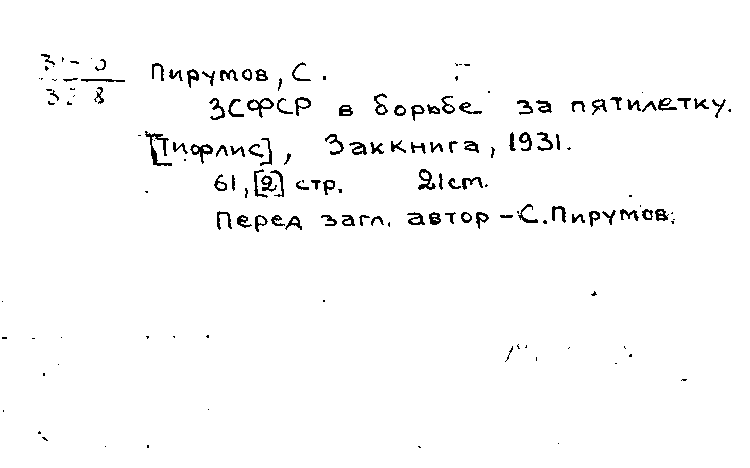 Пирумов, С.
ЗСФСР в борьбе за пятилетку.
[Тифлис], Заккнига, 1931.
61, [2] стр. 21cm.
Перед загл. автор – С. Пирумов.